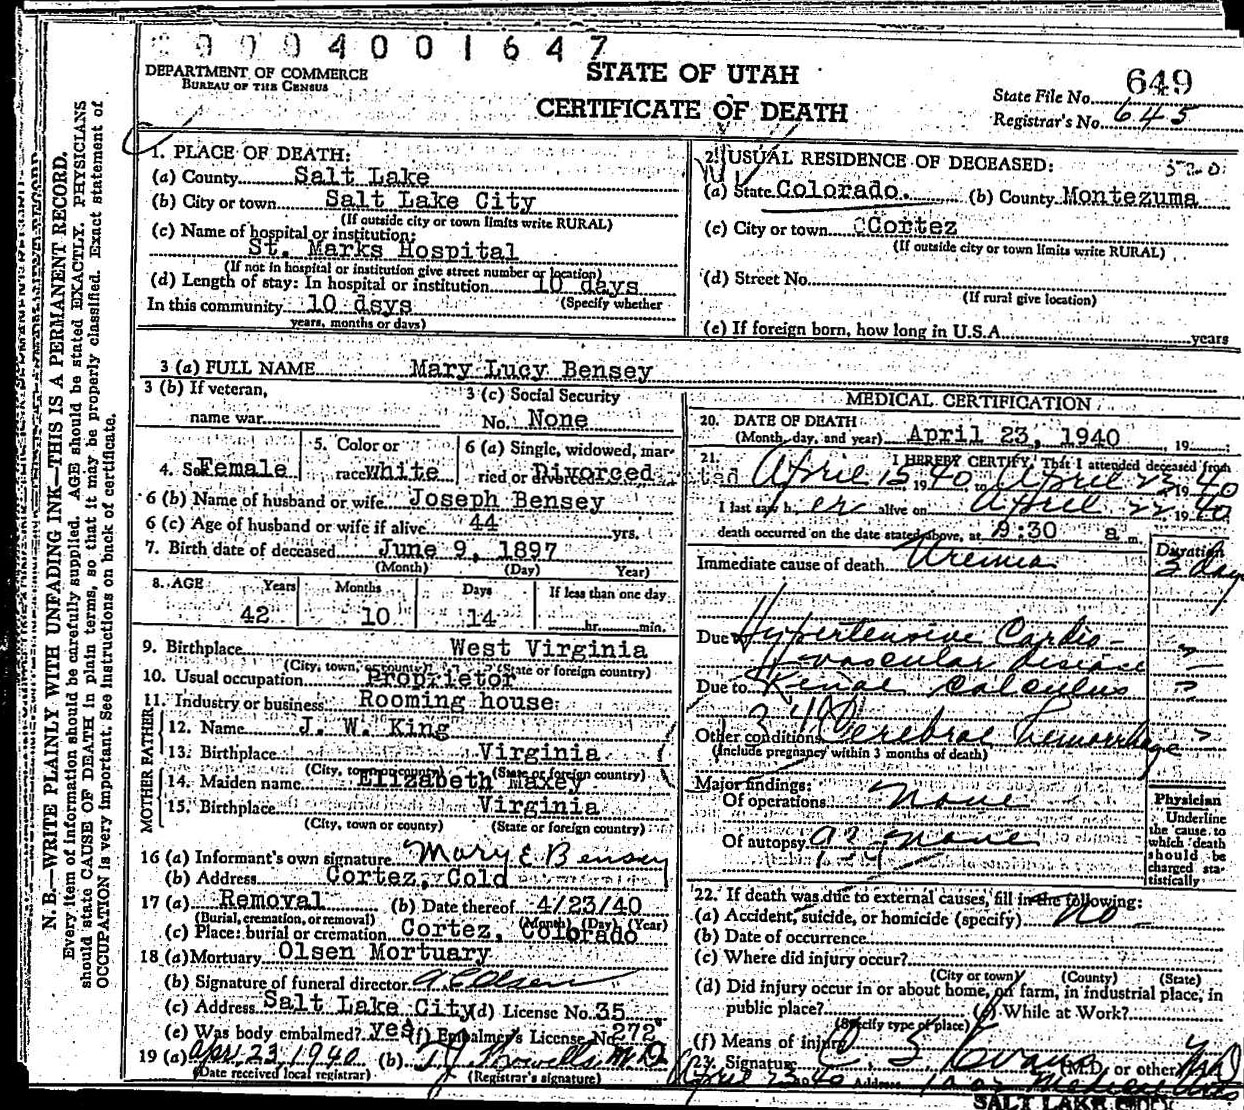 0 0 0 4 0 0 1 6 4 7
DEPARTMENT OF COMMERCE
BUREAU OF THE CENSUS
STATE OF UTAH
CERTIFICATE OF DEATH
State File No. 649
Registrar's No. 645
1. PLACE OF DEATH:
(a) County Salt Lake
(b) City or town Salt Lake City
(If outside city or town limits write RURAL)
(c) Name of hospital or institution:
St. Marks Hospital
(If not in hospital or institution give street number or location)
(d) Length of stay: In hospital or institution 10 days
(Specify whether
In this community 10 dsys
years, months or days)
2. USUAL RESIDENCE OF DECEASED:
(a) State Colorado. (b) County Montezuma
(c) City or town CCortez
(If outside city or town limits write RURAL)
(d) Street No.
(If rural give location)
(e) If foreign born, how long in U.S.A. years
3 (a) FULL NAME Mary Lucy Bensey
3 (b) If veteran, name war
3 (c) Social Security No. None
4. Sex Female
5. Color or race White
6 (a) Single, widowed, married or divorced Divorced
6 (b) Name of husband or wife Joseph Bensey
6 (c) Age of husband or wife if alive 44 yrs.
7. Birth date of deceased June 9, 1897
(Month) (Day) Year)
8. AGE Years Months Days If less than one day
42 10 14 hr. min.
9. Birthplace West Virginia
(City, town, or county) (State or foreign country)
10. Usual occupation Proprietor
11. Industry or business Rooming house
FATHER
12. Name J. W. King
13. Birthplace Virginia
(City, town or county) (State or foreign country)
MOTHER
14. Maiden name Elizabeth Maxey
15. Birthplace Virginia
(City, town or county) (State or foreign country)
16 (a) Informant's own signature Mary E Bensey
(b) Address Cortez, Cold
17 (a) Removal (b) Date thereof 4/23/40
(Burial, cremation, or removal) (Month) (Day) (Year)
(c) Place: burial or cremation Cortez, Colorado
18 (a) Mortuary Olsen Mortuary
(b) Signature of funeral director
(c) Address Salt Lake City (d) License No. 35
(e) Was body embalmed? yes (f) Embalmer's License No. 272
19 (a) Apr. 23 1940 (b) M.D.
(Date received local registrar) (Registrar's signature)
MEDICAL CERTIFICATION
20. DATE OF DEATH
(Month, day, and year) April 23, 1940, 19
21. I HEREBY CERTIFY, That I attended deceased from
April 15, 1940, to April 23, 1940
I last saw her alive on April 22, 1940
death occurred on the date stated above, at 9:30 a m.
Duration
Immediate cause of death Uremia 3 days
Due to Hypertensive Cardio-
vascular disease
Due to Renal Calculus
Other conditions Cerebral hemorrhage
(Include pregnancy within 3 months of death)
Major findings:
Of operations None
Of autopsy none
Physician
Underline
the cause to
which death
should be
charged sta-
tistically
22. If death was due to external causes, fill in the following:
(a) Accident, suicide, or homicide (specify) No
(b) Date of occurrence
(c) Where did injury occur?
(City or town) (County) (State)
(d) Did injury occur in or about home, on farm, in industrial place, in
public place? (e) While at Work?
(Specify type of place)
(f) Means of injury
23. Signature (M.D. or other) MD
April 23 1940 Address Medical Arts
SALT LAKE CITY
N. B.—WRITE PLAINLY WITH UNFADING INK—THIS IS A PERMANENT RECORD.
Every item of information should be carefully supplied. AGE should be stated EXACTLY. PHYSICIANS
should state CAUSE OF DEATH in plain terms, so that it may be properly classified. Exact statement of
OCCUPATION is very important. See instructions on back of certificate.